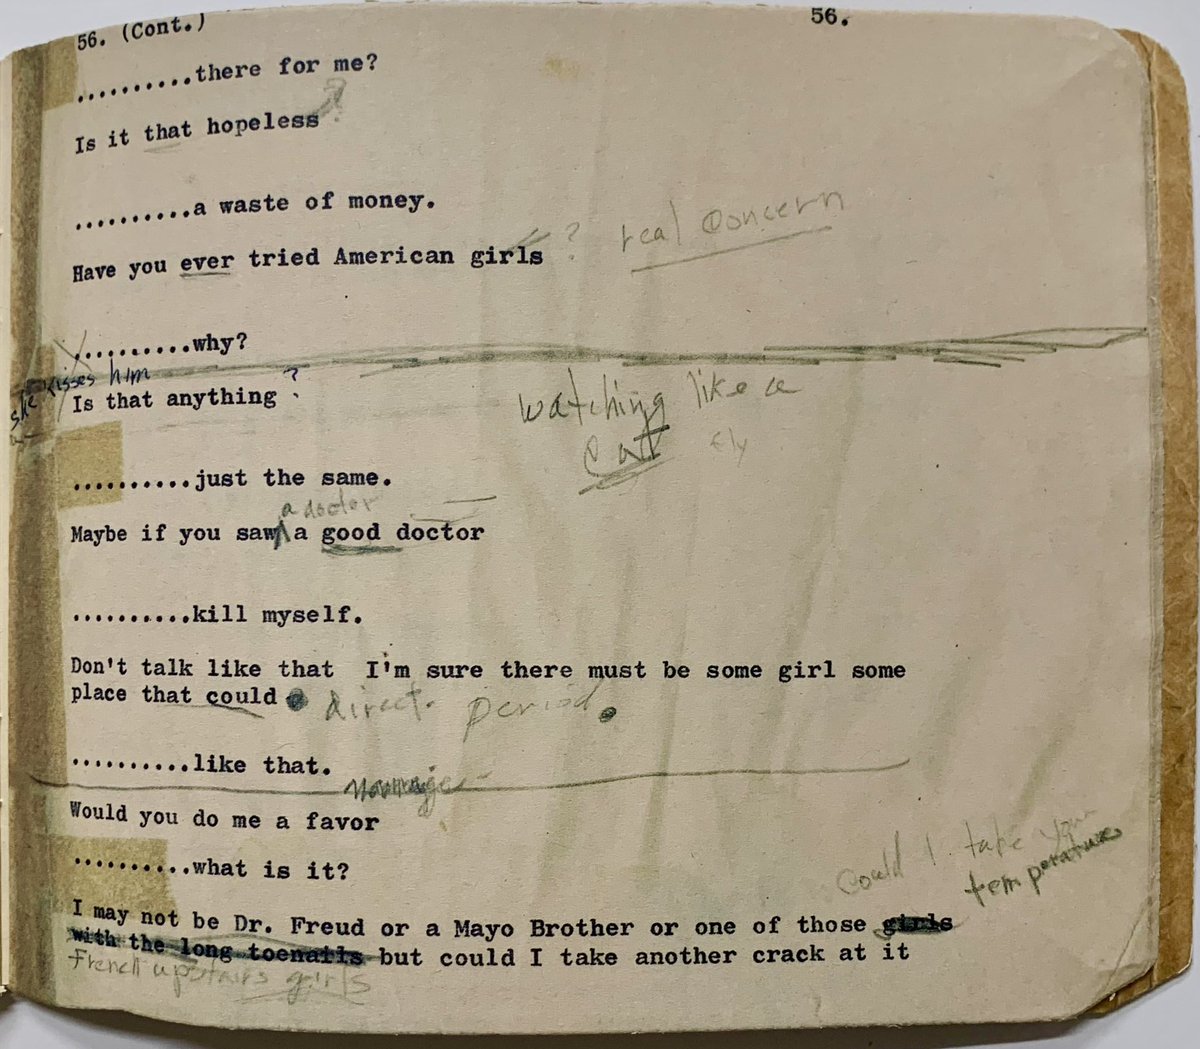 56. (Cont.) 56.
..........there for me?
Is it that hopeless ?
..........a waste of money.
Have you ever tried American girls ? real concern
..........why?
she kisses him
Is that anything ?
watching like a
cat
..........just the same.
a doctor
Maybe if you saw a good doctor
..........kill myself.
Don't talk like that I'm sure there must be some girl some
place that could direct. period.
..........like that.
Would you do me a favor
..........what is it?
Could I take your
temperature
I may not be Dr. Freud or a Mayo Brother or one of those girls
with the long toenails but could I take another crack at it
French upstairs girls